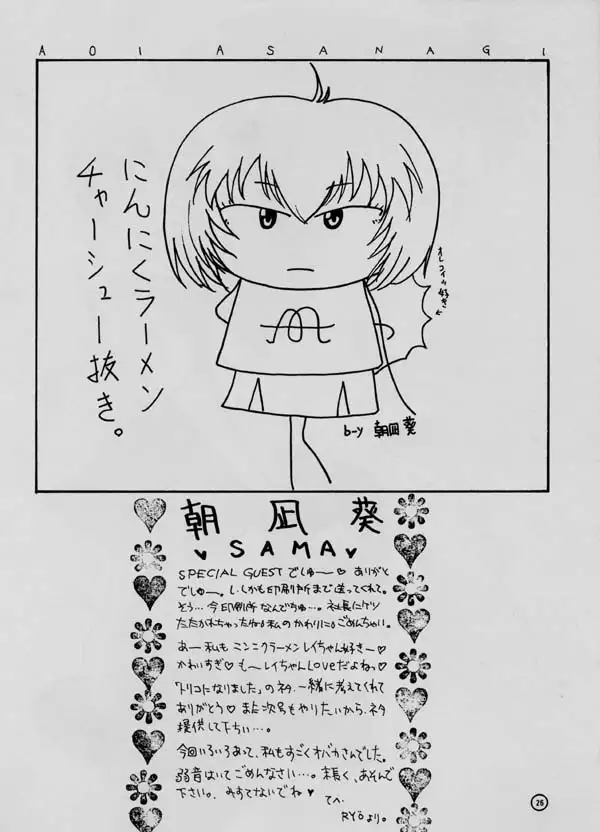 AOI ASANAGI
にんにくラーメン
チャーシュー抜き。
オレコイツ好き
b-y 朝凪葵
朝凪葵
♥ SAMA ♥
SPECIAL GUEST でしゅ〜♡ ありがと
でしゅー。しかも印刷所まで送ってくれて。
そう…今印刷所なんでちゅ…。社長にケツ
たたかれちゃったね♂私のかわりに♂ごめんちゃい。
あー私もニンニクラーメンレイちゃん好き〜♡
かわいすぎ♡も〜レイちゃんLoveだよねっ♡
「トリコになりました」のネタ、一緒に考えてくれて
ありがとう♡また次号もやりたいから、ネタ
提供して下ちい…。
今回いろいろあって、私もすごくオバカさんでした。
弱音はいてごめんなさい…。末長く、あそんで
下さい。みすてないでね♥
てへ
RYōより。
26